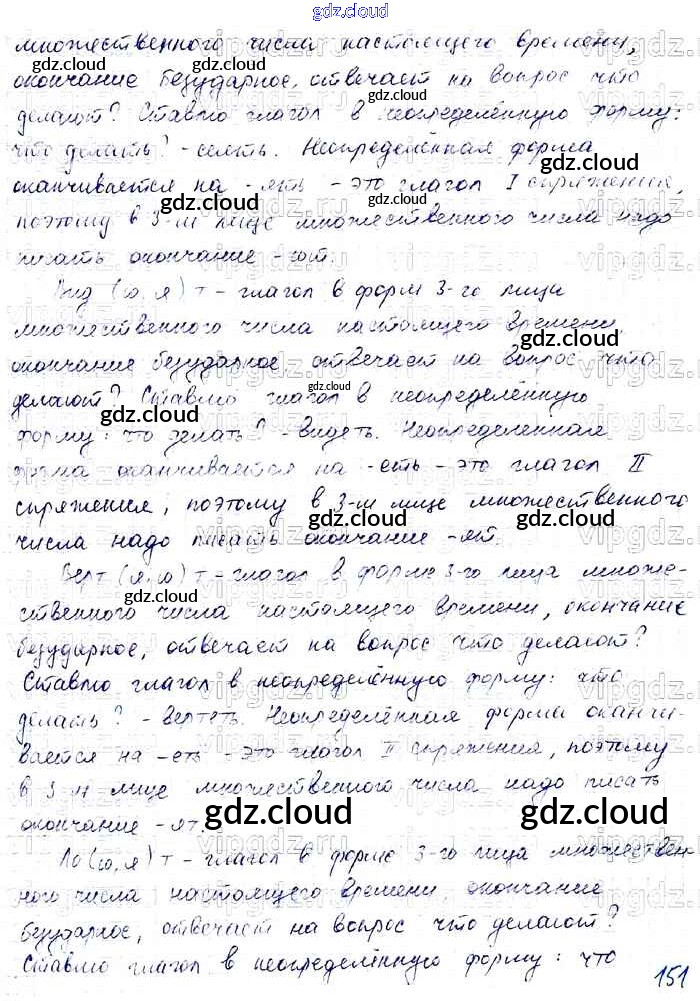 gdz.cloud
множественного числа настоящего времени,
окончание безударное, отвечает на вопрос что
делают? Ставлю глагол в неопределённую форму:
что делать? - сеять. Неопределённая форма
оканчивается на -ять - это глагол I спряжения,
поэтому в 3-м лице множественного числа надо
писать окончание -ют.
Вид (ю, я) т - глагол в форм 3-го лица
множественного числа настоящего времени,
окончание безударное, отвечает на вопрос что
делают? Ставлю глагол в неопределённую
форму: что делать? - видеть. Неопределенная
форма оканчивается на -еть - это глагол II
спряжения, поэтому в 3-м лице множественного
числа надо писать окончание -ят.
Верт (я, ю) т - глагол в форме 3-го лица множе-
ственного числа настоящего времени, окончание
безударное, отвечает на вопрос что делают?
Ставлю глагол в неопределённую форму: что
делать? - вертеть. Неопределённая форма оканчи-
вается на -еть - это глагол II спряжения, поэтому
в 3-м лице множественного числа надо писать
окончание -ят.
Ла (ю, я) т - глагол в форме 3-го лица множествен-
ного числа настоящего времени, окончание
безударное, отвечает на вопрос что делают?
Ставлю глагол в неопределённую форму: что
151